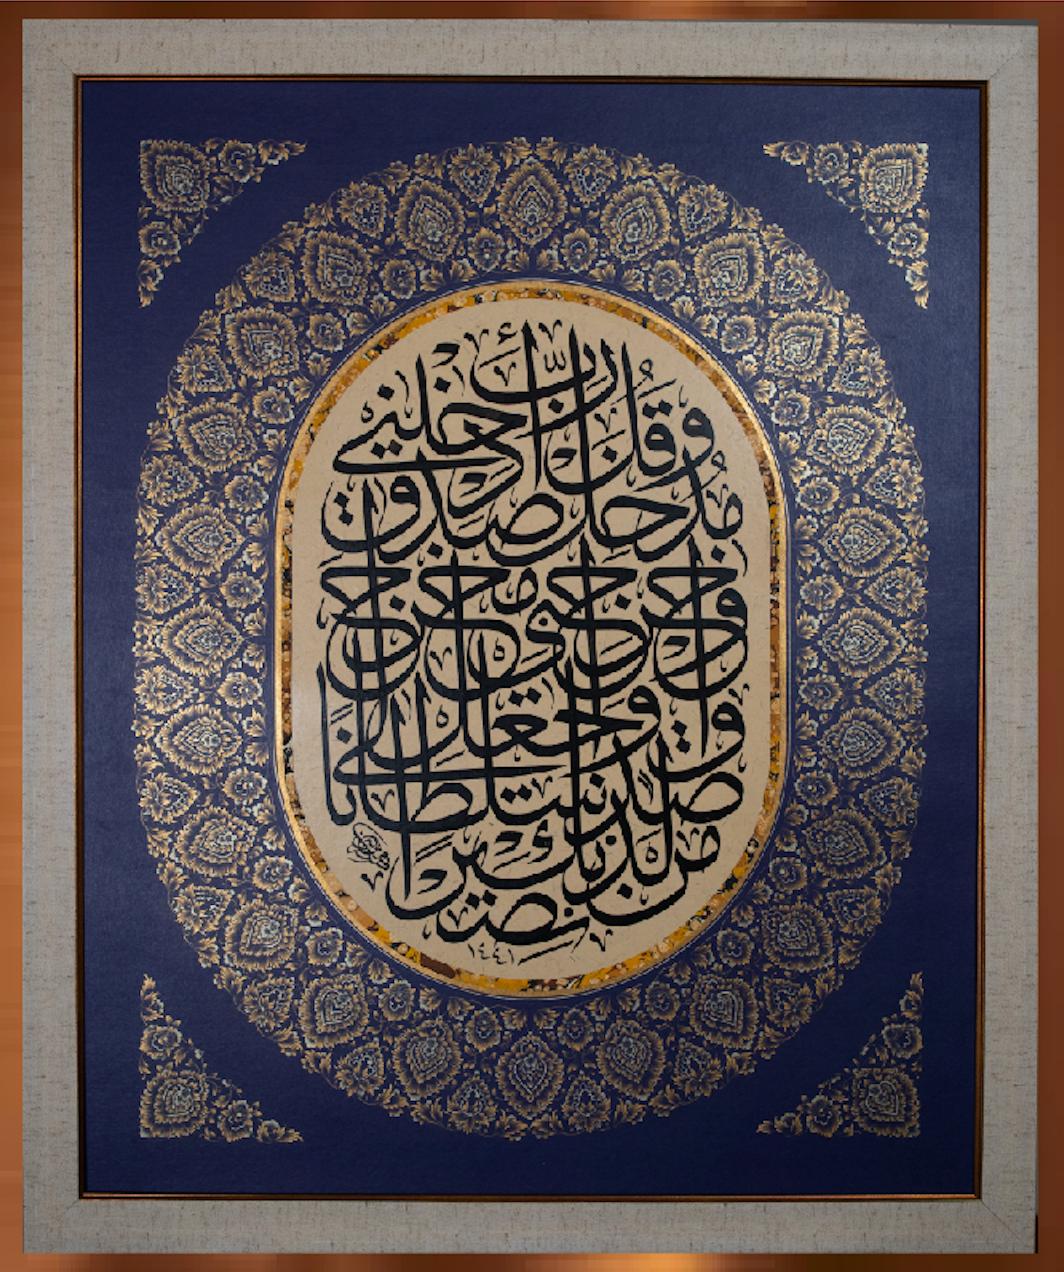 وَقُل رَّبِّ أَدْخِلْنِي
مُدْخَلَ صِدْقٍ
وَأَخْرِجْنِي مُخْرَجَ
صِدْقٍ وَاجْعَل لِّي
مِن لَّدُنكَ سُلْطَانًا
نَّصِيرًا
١٤٤١